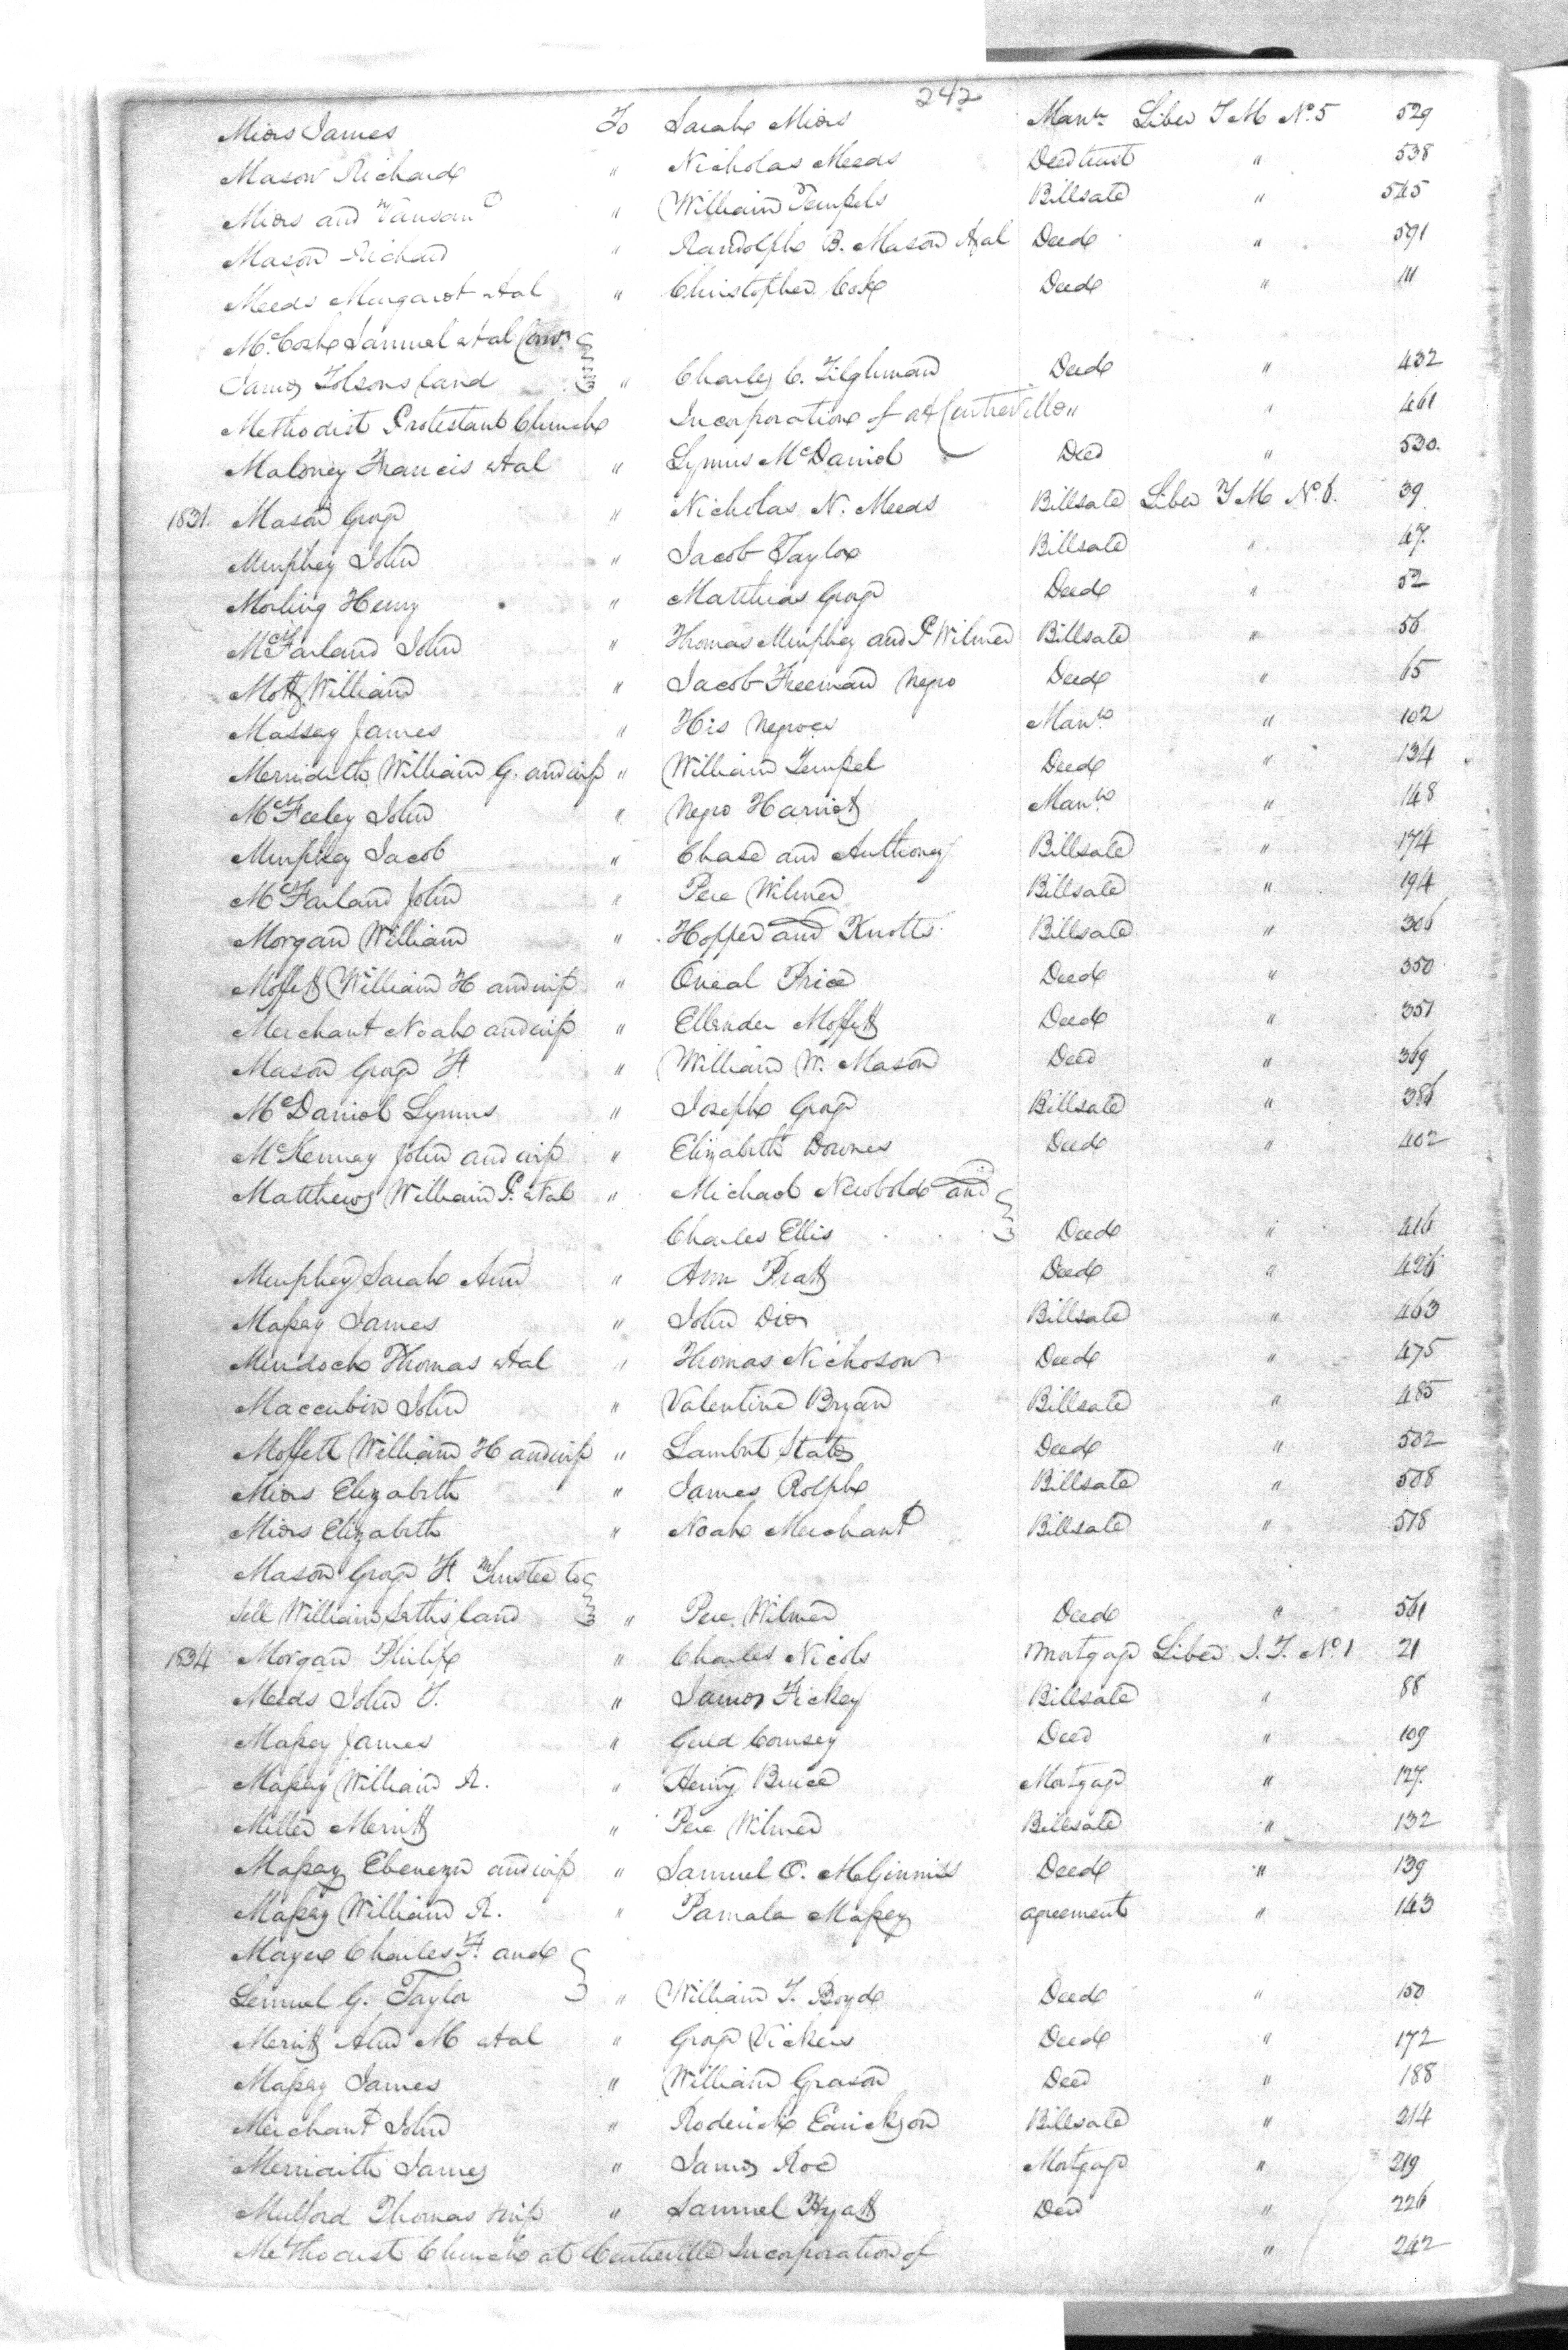 242
Miers James To Sarah Miers Mann. Liber T M No. 5 529
Mason Richard " Nicholas Meeds Deed trust " 538
Miers and Vansant " William Tempels Billsale " 545
Mason Richard " Randolph B. Mason &al Deed " 591
Meeds Margaret &al " Christopher Cox Deed " 111
McCosh Samuel &al Comrs.
James Tolsons land " Charles C. Tilghman Deed " 432
Methodist Protestant Church Incorporation of at Centreville " " 461
Maloney Francis &al " Lymus McDaniel Deed " 530.
1831. Mason George " Nicholas N. Meeds Billsale Liber T M No. 6. 39
Murphey John " Jacob Taylor Billsale " 47.
Morling Henry " Matthias George Deed " 52
McFarland John " Thomas Murphey and P Wilmer Billsale " 56
Mott William " Jacob Freeman Negro Deed " 65
Massey James " His Negroes Mann. " 102
Merridith William G. and wife " William Tempel Deed " 134
McFeeley John " Negro Harriott Mann. " 148
Murphey Jacob " Chase and Anthoney Billsale " 174
McFarland John " Pere Wilmer Billsale " 194
Morgan William " Hopper and Knotts Billsale " 306
Moffett William H and wife " Oneal Price Deed " 350
Merchant Noah and wife " Ellender Moffett Deed " 351
Mason George H. " William W. Mason Deed " 369
McDaniel Lymus " Joseph George Billsale " 386
McKenney John and wife " Elizabeth Downes Deed " 402
Matthews William P. &al " Michael Newbold and
Charles Ellis Deed " 416
Murphey Sarah Ann " Ann Pratt Deed " 426
Massey James " John Dior Billsale " 463
Murdoch Thomas &al " Thomas Nicholson Deed " 475
Maccubin John " Valentine Bryan Billsale " 485
Moffett William H and wife " Lambert States Deed " 502
Miers Elizabeth " James Rolph Billsale " 508
Miers Elizabeth " Noah Merchant Billsale " 518
Mason George H. Trustee to
sell William Seths land " Pere Wilmer Deed " 561
1834 Morgan Philip " Charles Nicols Mortgage Liber J. T. No. 1 21
Meeds John T. " James Fickey Billsale " 88
Massey James " Gerld Coursey Deed " 109
Massey William R. " Henry Bruce Mortgage " 127.
Miller Merritt " Pere Wilmer Billsale " 132
Massey Ebenezer and wife " Samuel O. McGinniss Deed " 139
Massey William R. " Pamala Massey agreement " 143
Mayer Charles F. and
Lemuel G. Taylor " William T. Boyd Deed " 150
Merritt Ann M &al " George Vickers Deed " 172
Massey James " William Grason Deed " 188
Merchant John " Roderick Earickson Billsale " 214
Merridith James " James Roe Mortgage " 219
Mulford Thomas & wife " Samuel Hyatt Deed " 226
Methodist Church at Centreville Incorporation of " 242